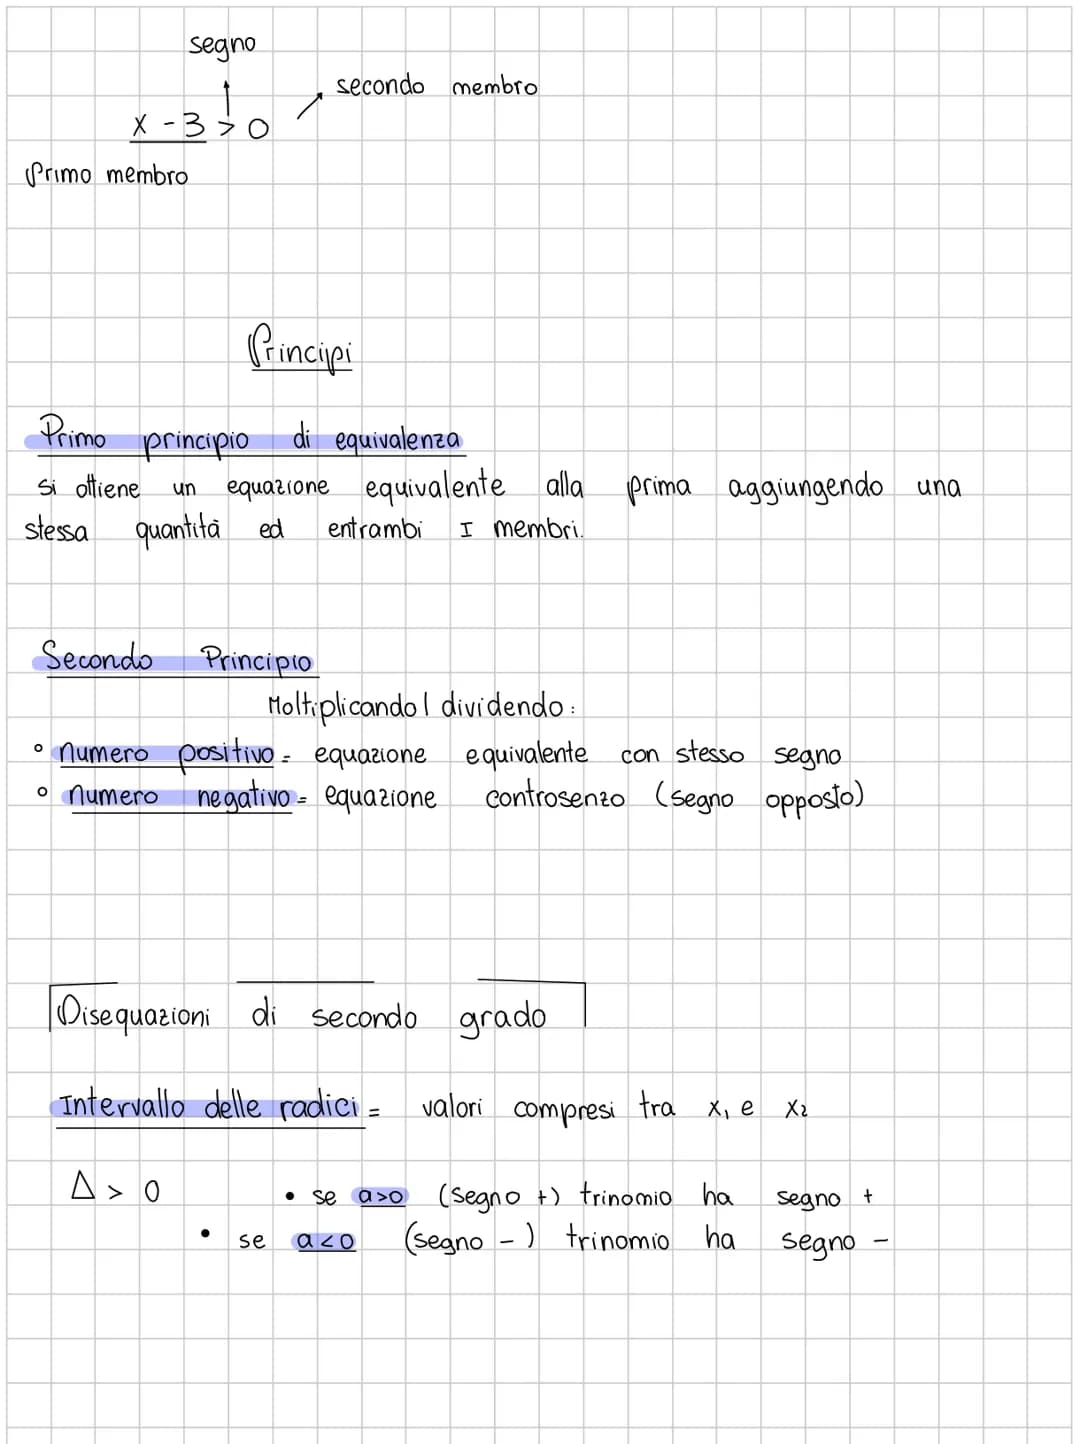 segno
secondo membro
x - 3 > 0
Primo membro
Principi
Primo principio di equivalenza
si ottiene un equazione equivalente alla prima aggiungendo una
stessa quantità ed entrambi I membri.
Secondo Principio
Moltiplicando | dividendo :
° numero positivo = equazione equivalente con stesso segno
° numero negativo = equazione controsenzo (segno opposto)
Disequazioni di secondo grado
Intervallo delle radici = valori compresi tra x₁ e x₂
Δ > 0 • se a>0 (segno +) trinomio ha segno +
• se a<0 (segno -) trinomio ha segno -